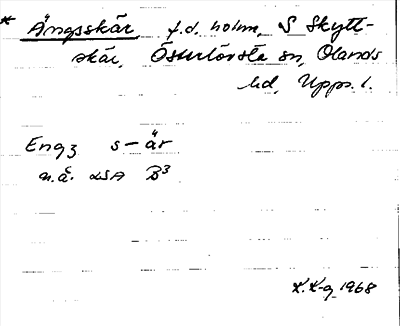 * Ängsskär, f.d. holme, S Skytt-
skär, Österlövsta sn, Olands
hd, Upps. l.
Engz s-är
n.å. LSA B³
K.K-g 1968